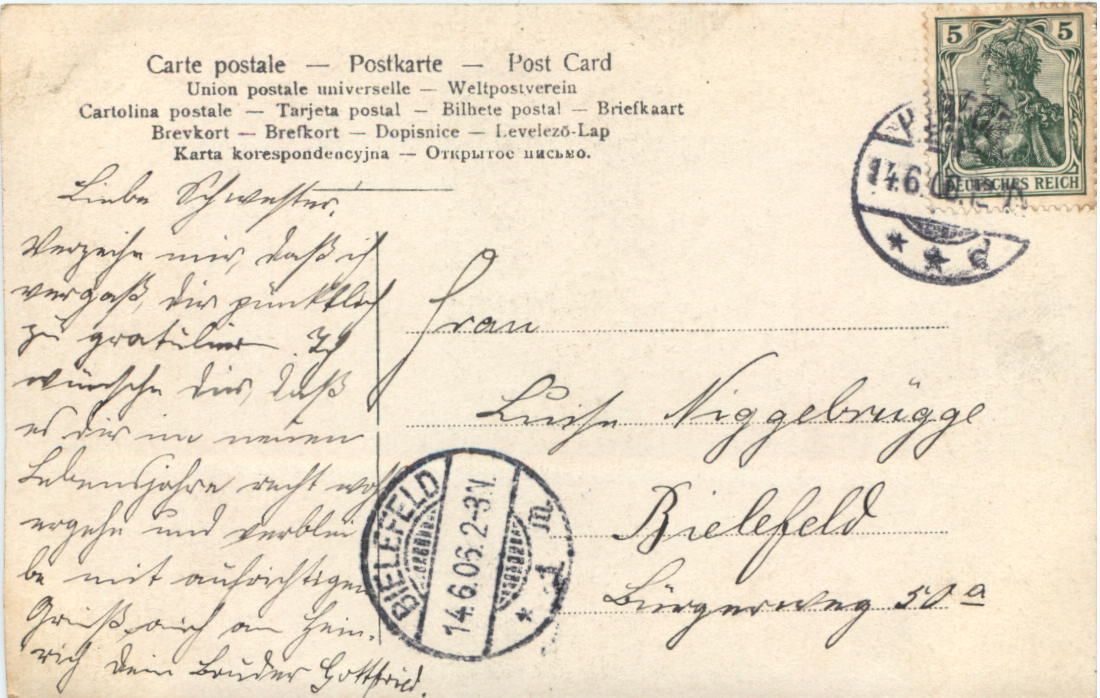 Carte postale — Postkarte — Post Card
Union postale universelle — Weltpostverein
Cartolina postale — Tarjeta postal — Bilhete postal — Briefkaart
Brevkort — Brefkort — Dopisnice — Levelező-Lap
Karta korespondencyjna — Открытое письмо.
Liebe Schwester,
Verzeihe mir, daß ich
vergaß, dir pünktlich
zu gratulieren. Ich
wünsche dir, daß
es dir im neuen
Lebensjahre recht wohl
ergehe und verblei
be mit aufrichtigem
Gruß, auch an Hein-
rich Dein Bruder Gottfried.
Frau
Luise Niggebrügge
Bielefeld
Bürgerweg 50a
5 5
DEUTSCHES REICH
14.6.
* * d
BIELEFELD
14.6.06. 2-3 N.
* 1 m